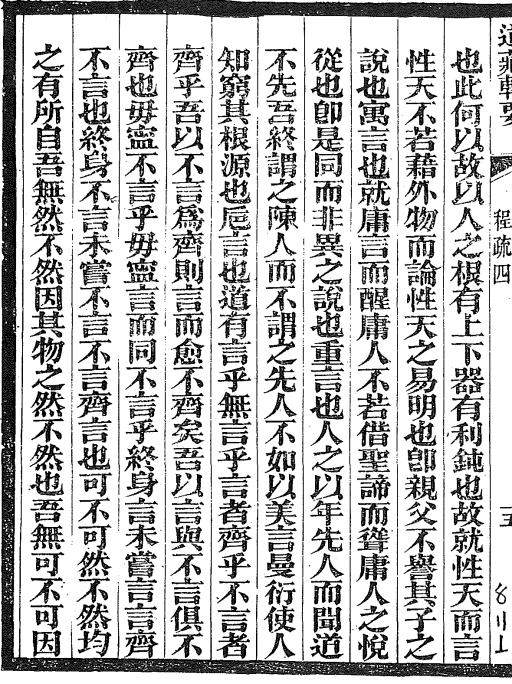 道藏輯要
程疏四
五
8川上
也此何以故以人之根有上下器有利鈍也故就性天而言
性天不若藉外物而論性天之易明也卽親父不譽其子之
說也寓言也就庸言而醒庸人不若借聖諦而聳庸人之悅
從也卽是同而非異之說也重言也人之以年先人而聞道
不先吾終謂之陳人而不謂之先人不如以美言曼衍使人
知窮其根源也巵言也道有言乎無言乎言者齊乎不言者
齊乎吾以不言爲齊則言而愈不齊矣吾以言與不言俱不
齊也毋寧不言乎毋寧言而同不言乎終身言未嘗言言齊
不言也終身不言未嘗不言不言齊言也可不可然不然均
之有所自吾無然不然因其物之然不然也吾無可不可因